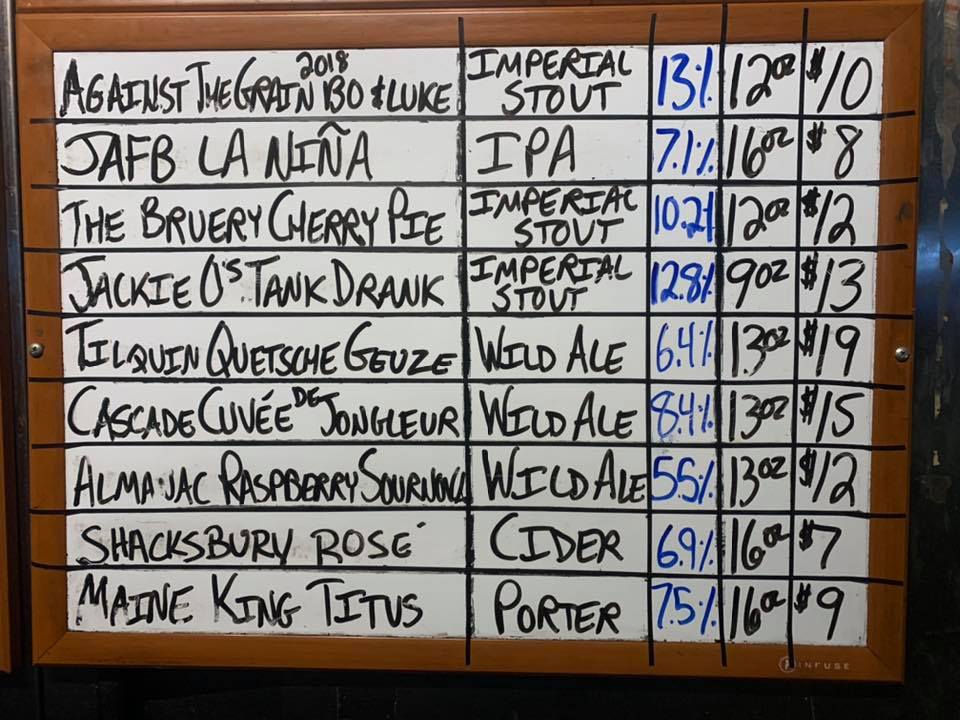 AGAINST THE GRAIN 2018 BO & LUKE IMPERIAL STOUT 13% 12oz $10
JAFB LA NIÑA IPA 7.1% 16oz $8
THE BRUERY CHERRY PIE IMPERIAL STOUT 10.2% 12oz $12
JACKIE O'S TANK DRANK IMPERIAL STOUT 12.8% 9oz $13
TILQUIN QUETSCHE GEUZE WILD ALE 6.4% 13oz $19
CASCADE CUVÉE DE JONGLEUR WILD ALE 8.4% 13oz $15
ALMANAC RASPBERRY SOURNOVA WILD ALE 5.5% 13oz $12
SHACKSBURY ROSÉ CIDER 6.9% 16oz $7
MAINE KING TITUS PORTER 7.5% 16oz $9
INFUSE